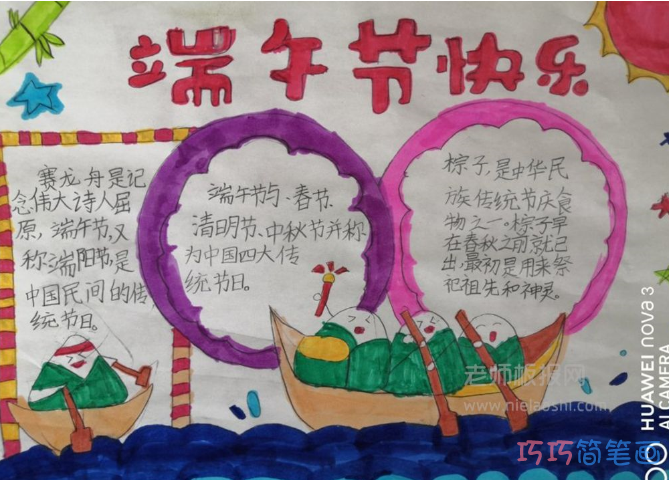 端午节快乐
赛龙舟是记
念伟大诗人屈
原,端午节又
称端阳节是
中国民间的传
统节日。
端午节与、春节、
清明节、中秋节并称
为中国四大传
统节日。
棕子,是中华民
族传统节庆食
物之一,棕子早
在春秋之前就已
出,最初是用来祭
祀祖先和神灵。
老师板报网
www.nielaoshi.com
HUAWEI nova 3
AI CAMERA
巧巧简笔画